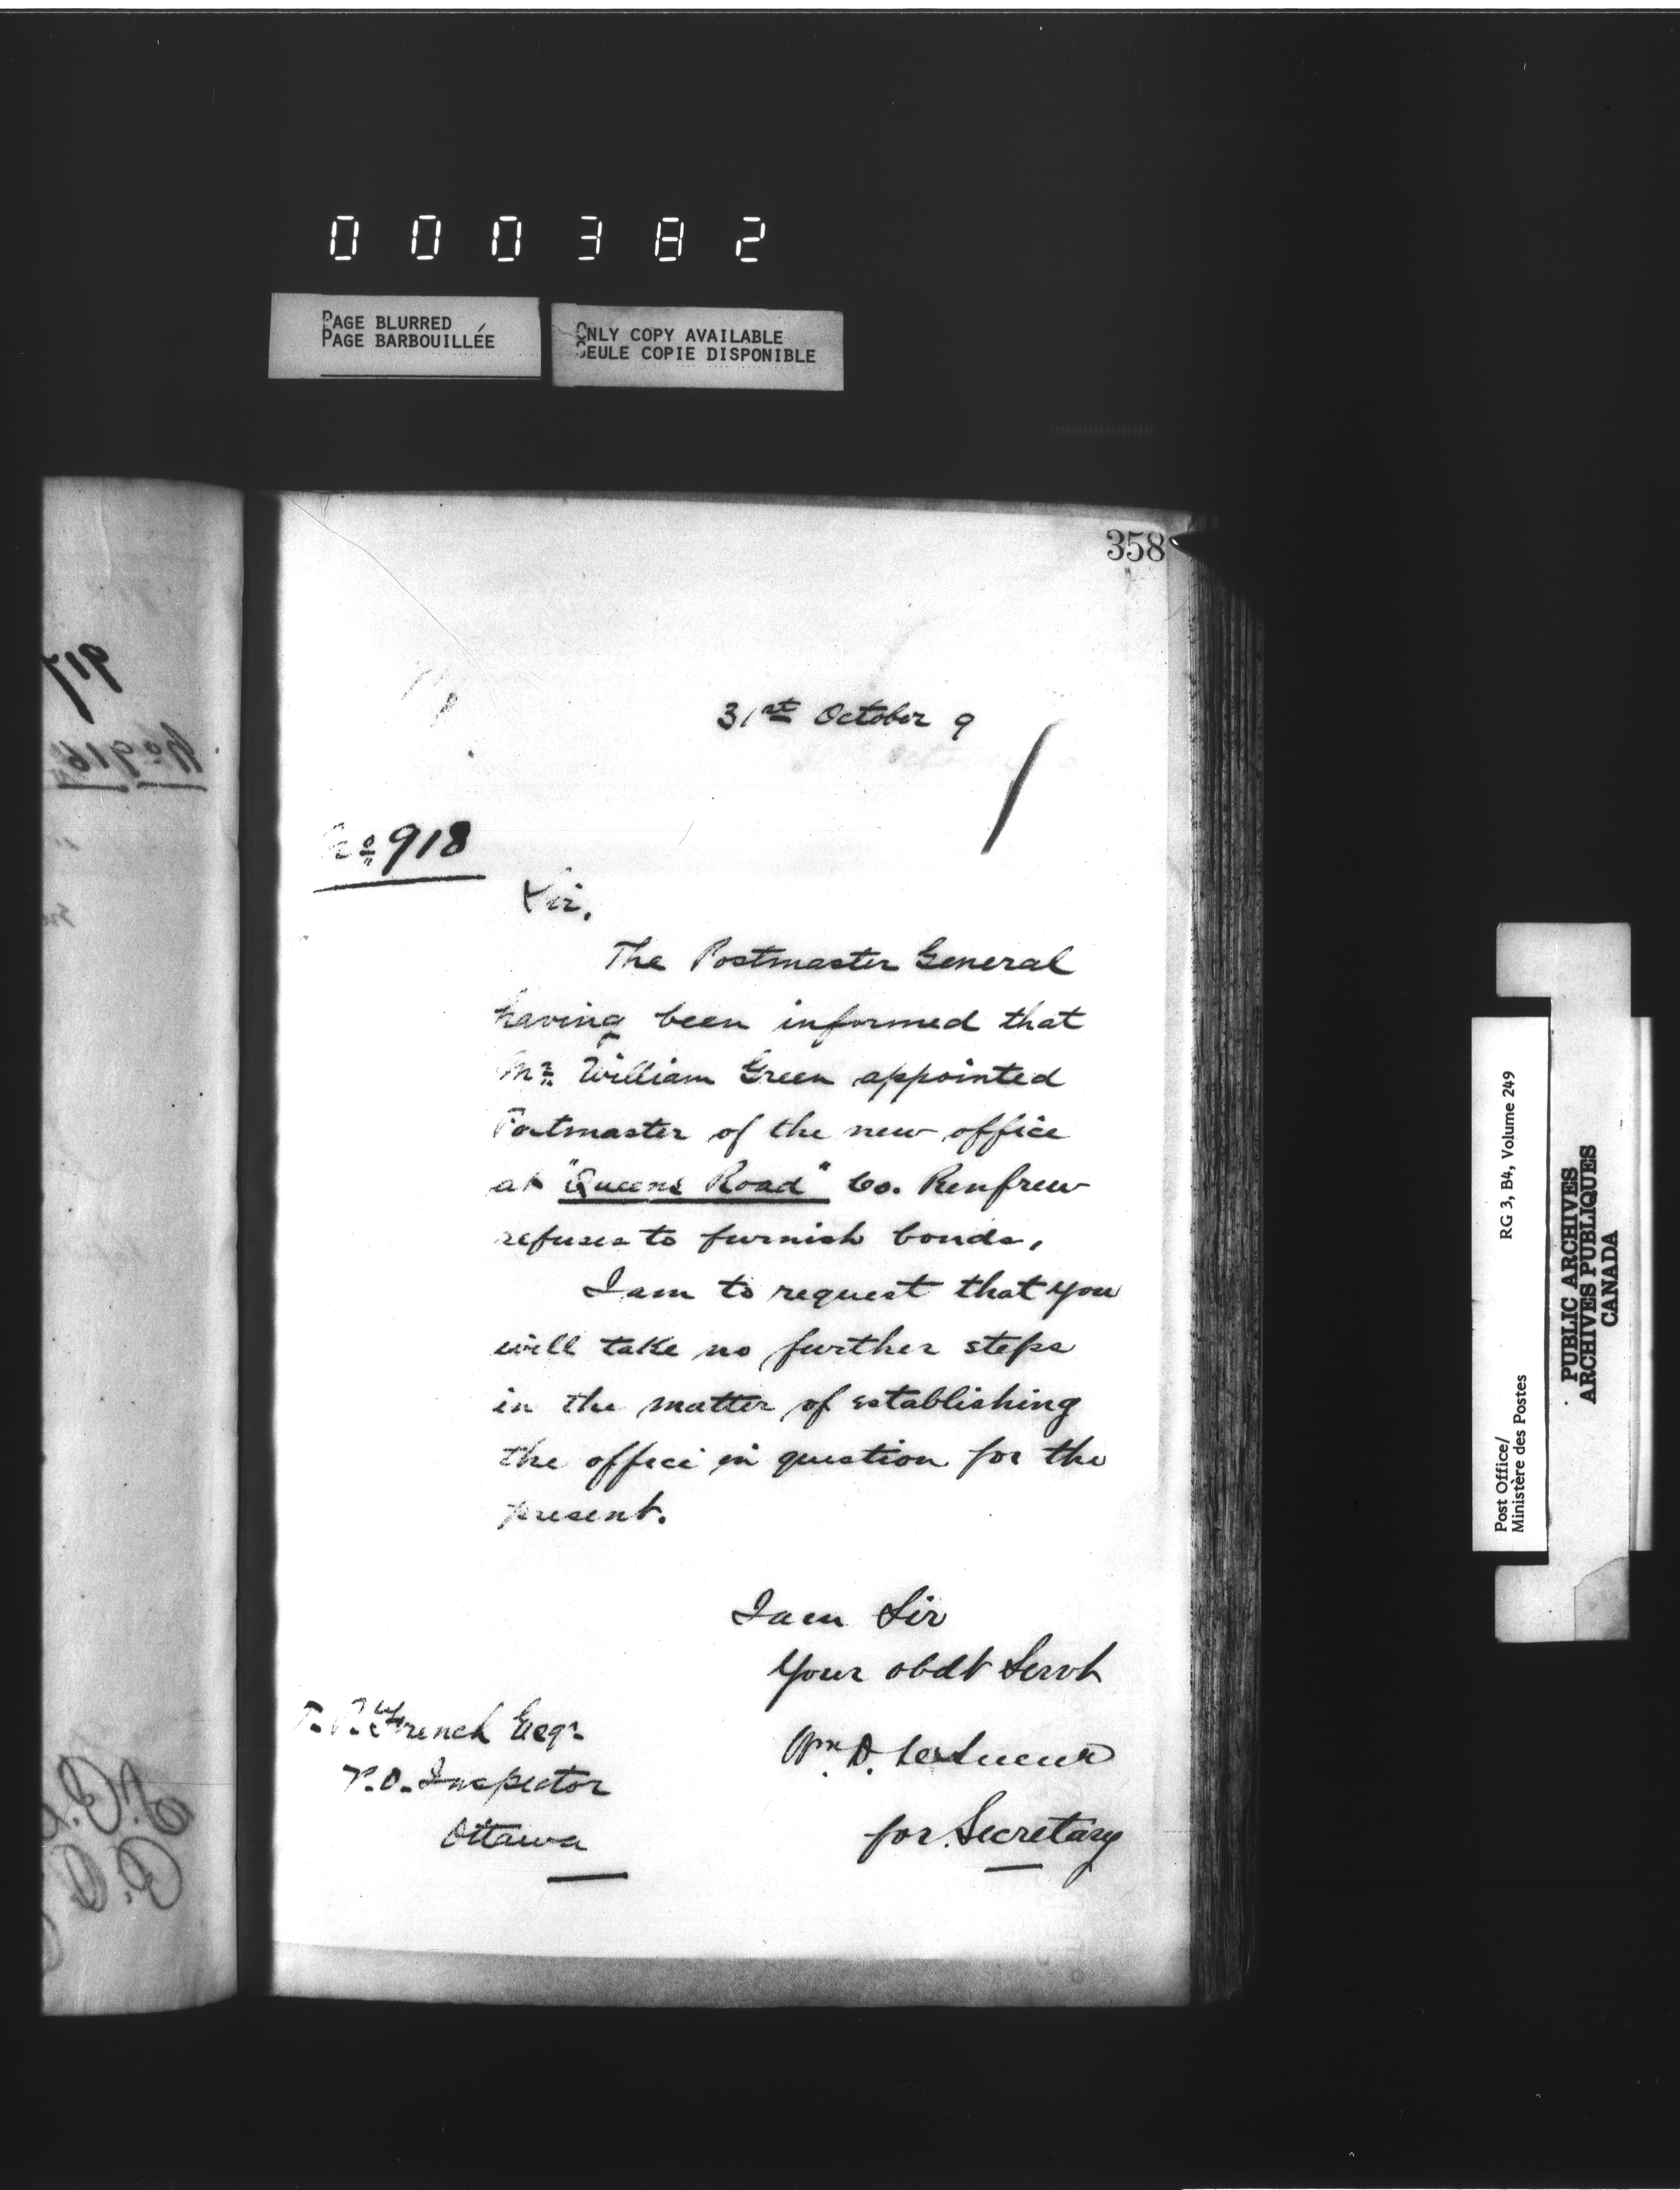 000382
PAGE BLURRED
PAGE BARBOUILLÉE
ONLY COPY AVAILABLE
SEULE COPIE DISPONIBLE
358
31st October 9
No 918
Sir,
The Postmaster General
having been informed that
Mr William Green appointed
Postmaster of the new office
at "Queens Road" Co. Renfrew
refuses to furnish bonds,
I am to request that you
will take no further steps
in the matter of establishing
the office in question for the
present.
I am Sir
Your obdt Servt
Wm D. LeSueur
for Secretary
T. P. French Esqr
P.O. Inspector
Ottawa
917
No 916
Post Office/
Ministère des Postes
RG 3, B4, Volume 249
PUBLIC ARCHIVES
ARCHIVES PUBLIQUES
CANADA